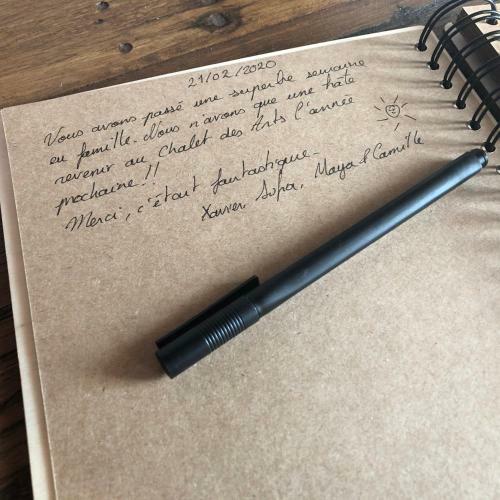 21/02/2020
Nous avons passé une superbe semaine
en famille. Nous n'avons que une hâte
revenir au Chalet des Arts l'année
prochaine !!
Merci, c'était fantastique.
Xavier, Sofia, Maya & Camille